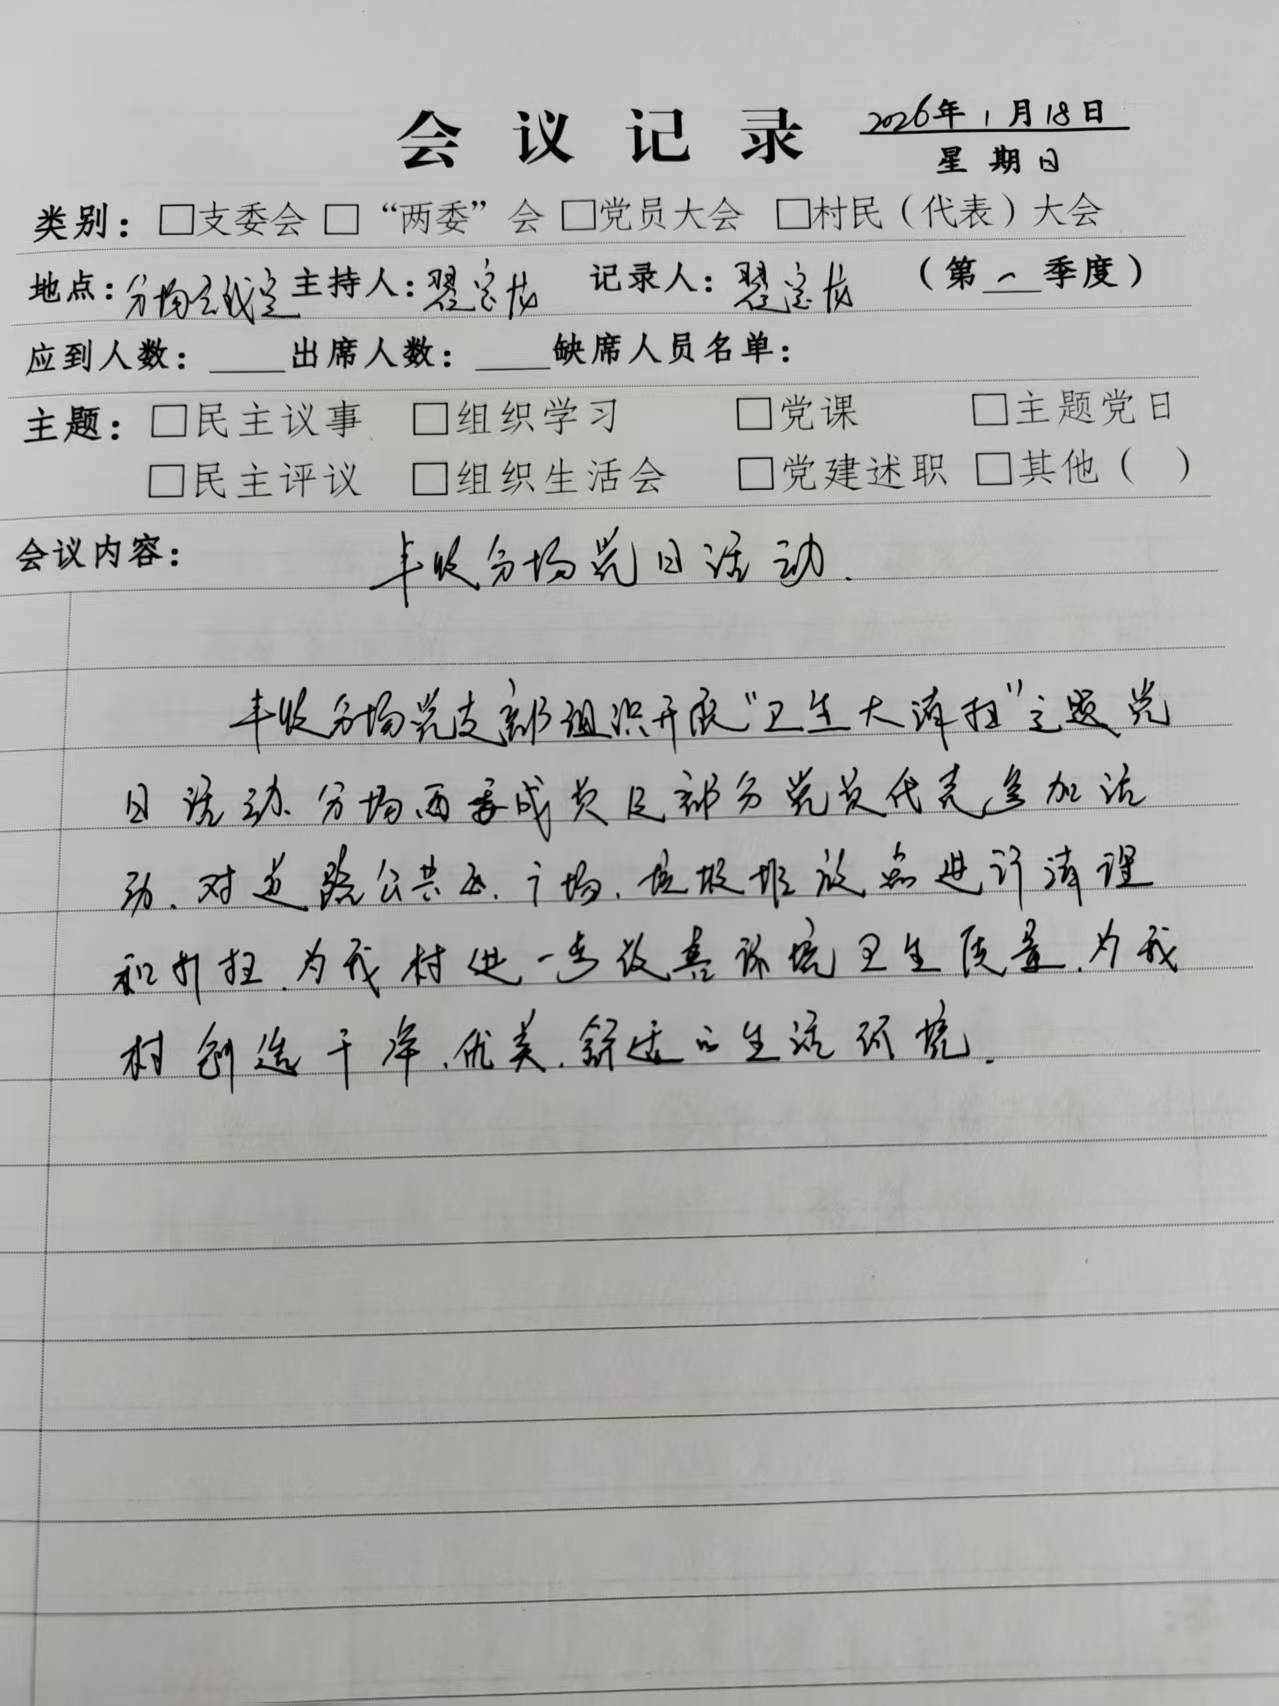 会议记录 2026年1月18日
星期日
类别：□支委会 □“两委”会 □党员大会 □村民（代表）大会
地点：分场会议室 主持人：翟宝 记录人：翟宝 （第一季度）
应到人数：____出席人数：____缺席人员名单：
主题：□民主议事 □组织学习 □党课 □主题党日
□民主评议 □组织生活会 □党建述职 □其他（ ）
会议内容： 丰收分场党日活动.
丰收分场党支部组织开展“卫生大清扫”主题党
日活动.分场两委成员及部分党员代表参加活
动.对道路公共区.广场.垃圾堆放点进行清理
和打扫.为我村进一步改善环境卫生质量.为我
村创造干净.优美.舒适的生活环境.